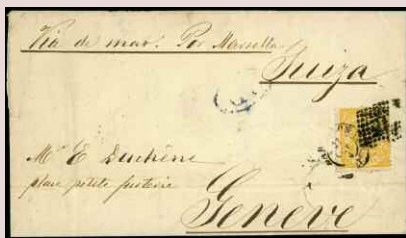 Via de mar. Por Marsella
Suiza
Mr E Duchêne
place petite fusterie
Genêve